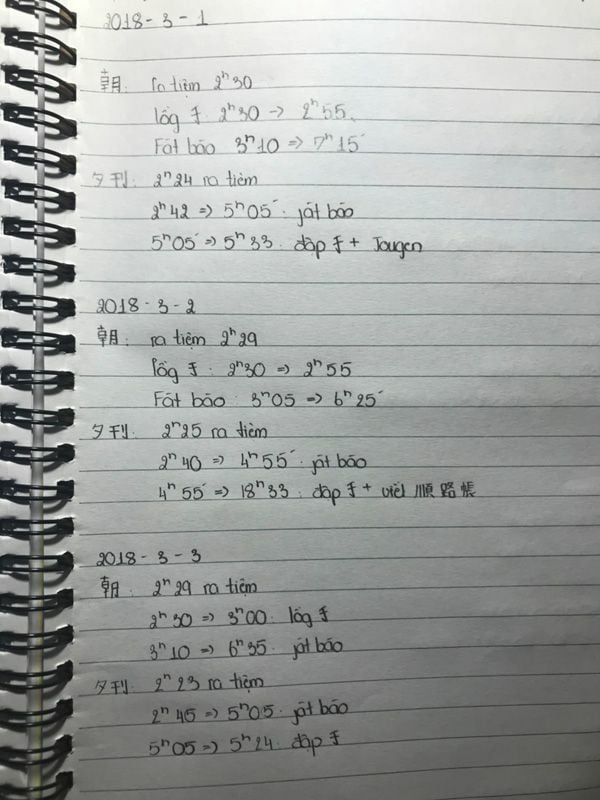 2018-3-1
朝: ra tiệm 2h30
lồng チ: 2h30 => 2h55
Fát báo 3h10 => 7h15'
夕刊: 2h24 ra tiệm
2h42 => 5h05'. fát báo
5h05' => 5h33. đập チ + Jougen
2018-3-2
朝: ra tiệm 2h29
lồng チ: 2h30 => 2h55
Fát báo: 3h05 => 6h25'
夕刊: 2h25 ra tiệm
2h40 => 4h55'. fát báo
4h55' => 18h33. đập チ + viết 順路帳
2018-3-3
朝: 2h29 ra tiệm
2h30 => 3h00. lồng チ
3h10 => 6h35. fát báo
夕刊: 2h23 ra tiệm
2h45 => 5h05. fát báo
5h05 => 5h24. đập チ